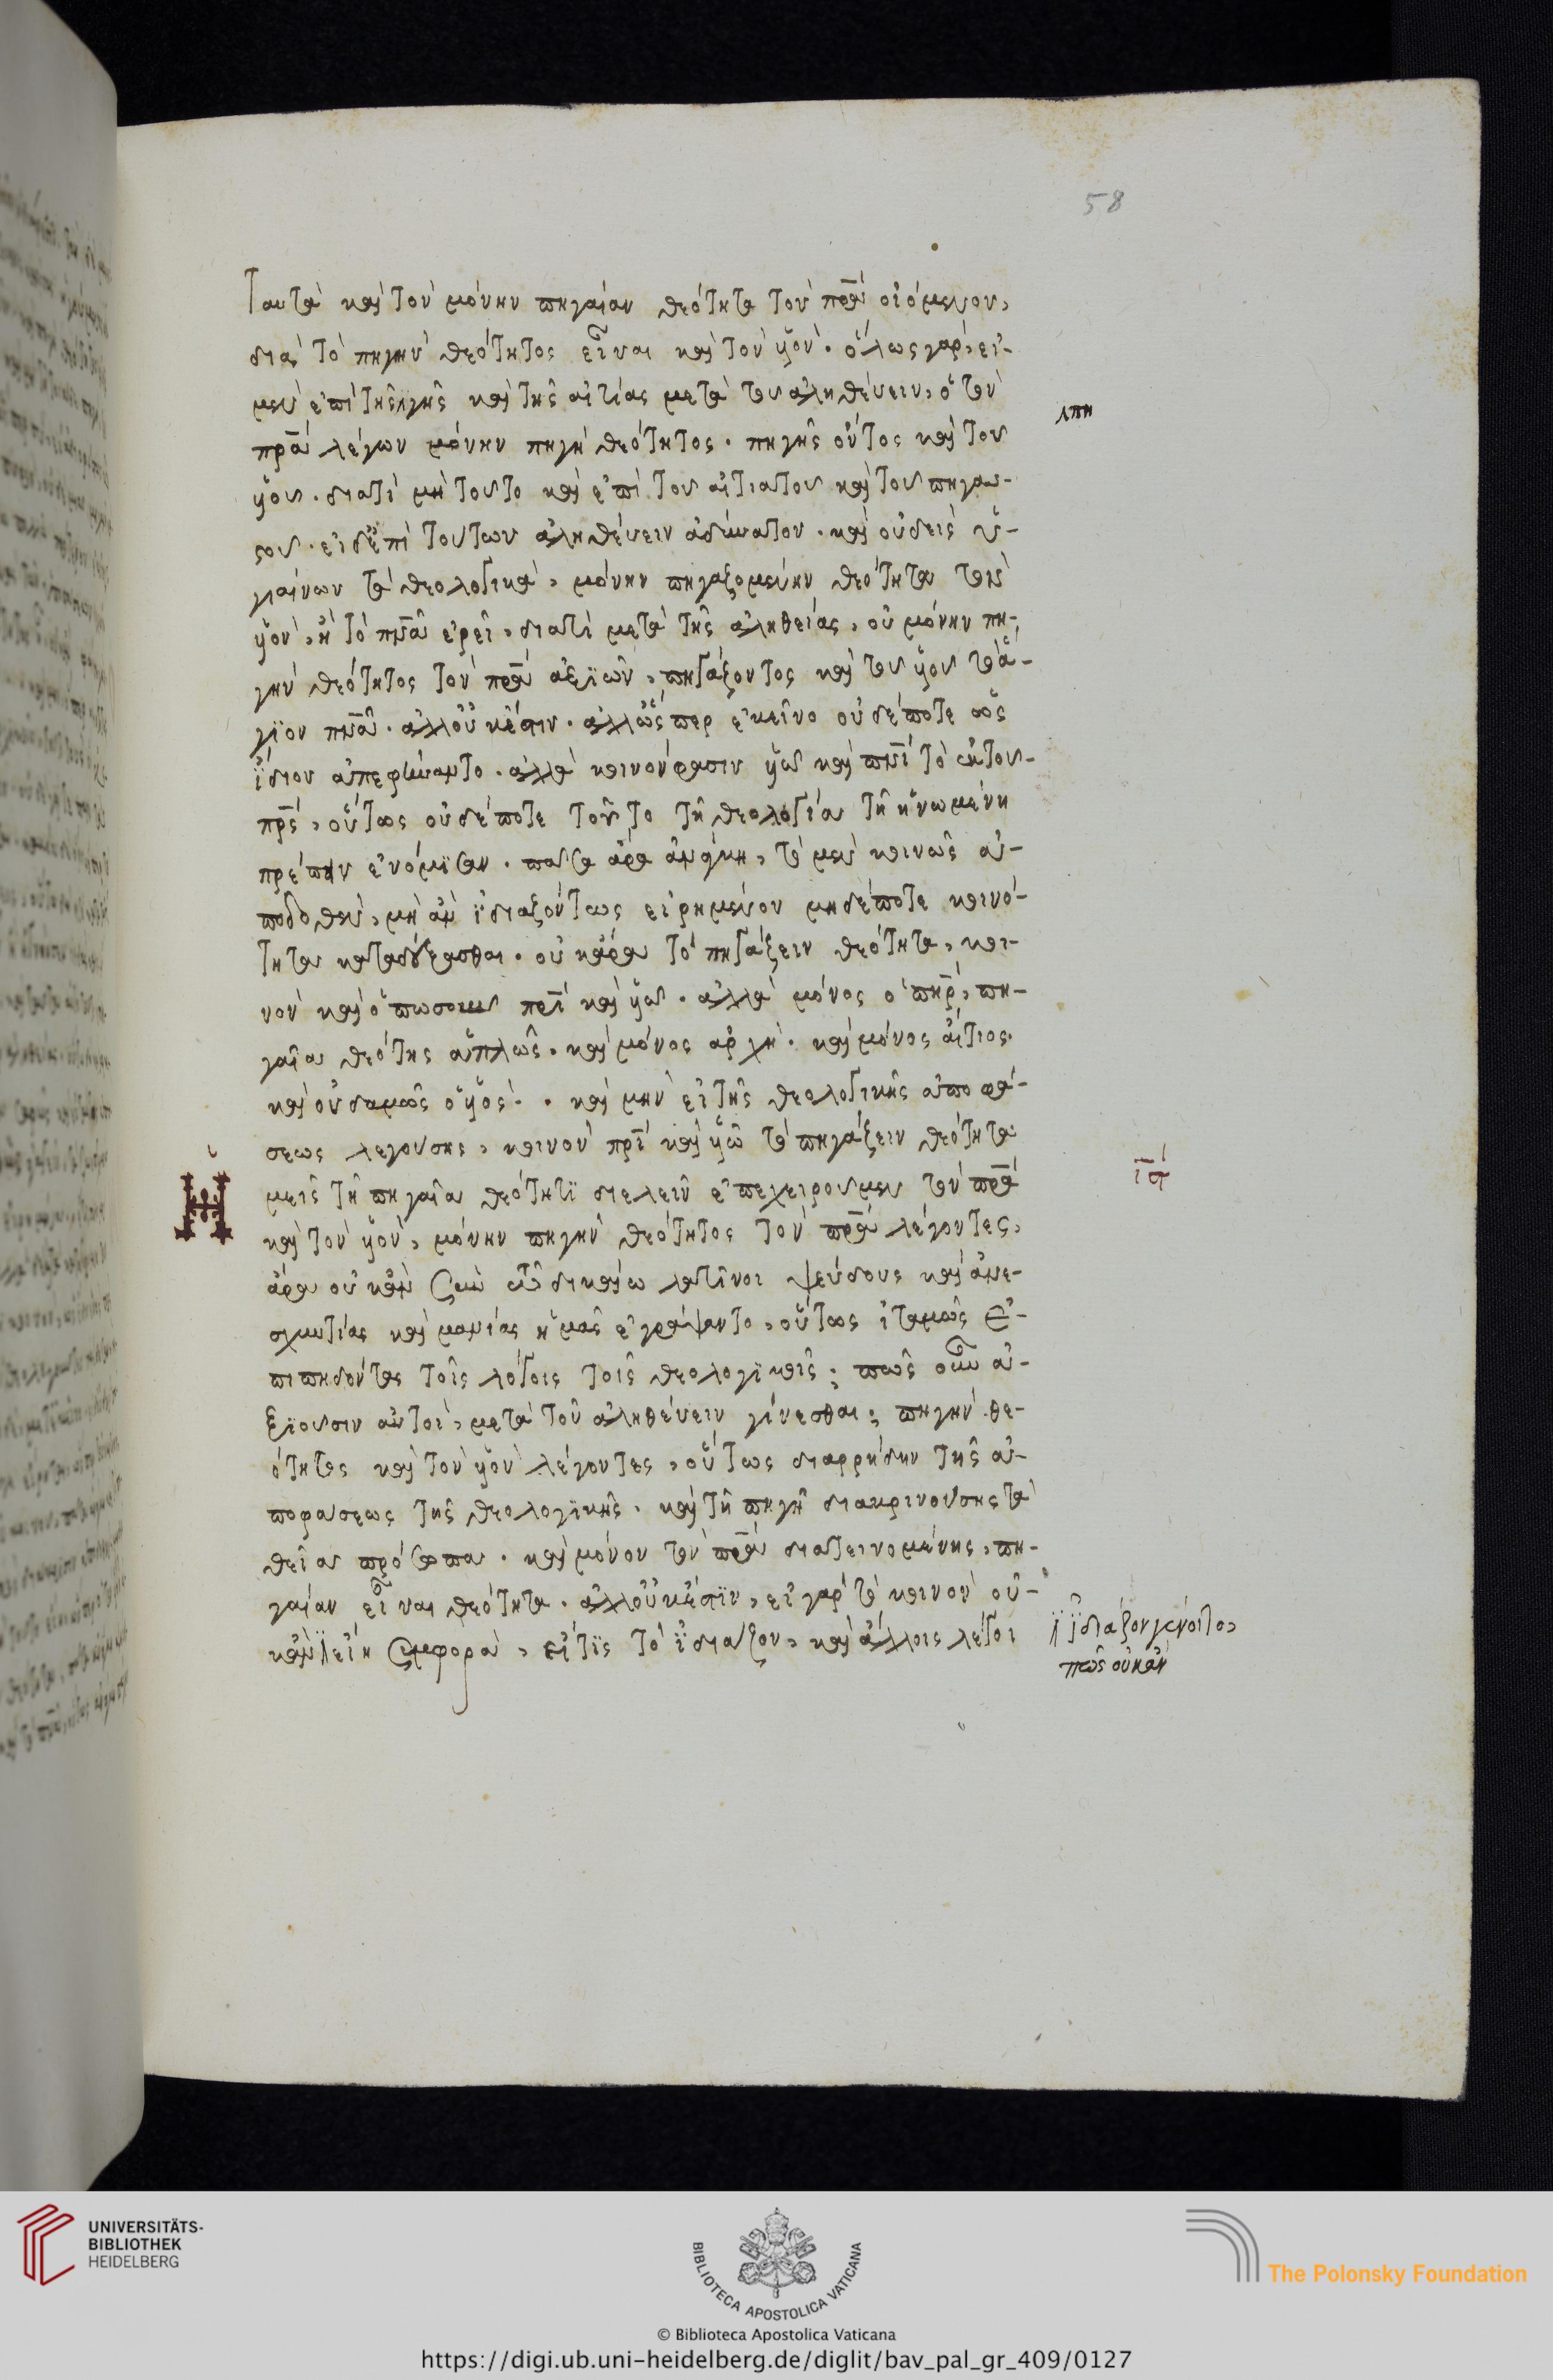 58
ταυτὰ καὶ τὸν μόνην πηγαίαν θεότητα τὸν πρα οἰόμενον,
διὰ τὸ πηγὴν θεότητος εἶναι καὶ τὸν υἱόν. ὅλως γὰρ, εἰ-
μὲν ἐπὶ τῆς γῆς καὶ τῆς αἰτίας μετὰ τοῦ ἀληθεύειν, ὁ τὸν
πρα λέγων μόνην πηγὴ θεότητος. πηγῆς ὄντος καὶ τοῦ
λπη
υἱοῦ. διατί μὴ τοῦτο καὶ ἐπὶ τοῦ αἰτιατοῦ καὶ τοῦ
εἰ δἐπὶ τούτων ἀληθεύειν ἀδύνατον. καὶ οὐδεὶς ὑ-
γιαίνων τὰ θεολογικὰ, μόνην πηγαζομένην θεότητα τὸν
υἱὸν, ἢ τὸ πνα ἐρεῖ, διατί μετὰ τῆς ἀληθείας, οὐ μόνην πη-
γὴν θεότητος τὸν πρα ἀξιῶν, πηγάζοντος καὶ τοῦ υἱοῦ τὸ ἅ-
γιον πνα. ἀλλοὐκἔστιν. ἀλλὥσπερ ἐκεῖνο οὐδέποτε ὡς
ἴδιον ἀπεφήναντο. ἀλλὰ κοινόν φασιν υἱῶ καὶ πνι τὸ ἐκ τοῦ-
πρς, οὕτως οὐδέποτε τοῦτο τῆ θεολογία τῆ ἡνωμένη
πρέπειν ἐνόμισαν. πᾶσα ἄρα ἀνάγκη, τὸ μὲν κοινῶς ἀ-
ποδοθὲν, μὴ ἂν ἰδιαζόντως εἰρημένον μηδέποτε κοινό-
τητα καταδέξασθαι. οὐκἄρα τὸ πηγάζειν θεότητα, κοι-
νὸν καὶ ὁπωσοῦν πρι καὶ υἱῶ. ἀλλὰ μόνος ὁ πηρ, πη-
γαῖα θεότης ἁπλῶς. καὶ μόνος ἀρχὴ. καὶ μόνος αἴτιος.
καὶ οὐδαμῶς ὁ υἱός. καὶ μὴν εἰ τῆς θεολογικῆς ἀποφά-
σεως λεγούσης, κοινὸν πρι καὶ υἱῶ τὸ πηγάζειν θεότητα
Ημεῖς τῆ πηγαῖα θεότητι διελεῖν ἐπεχειροῦμεν τὸν πρα
ις
καὶ τὸν υἱὸν, μόνην πηγὴν θεότητος τὸν πρα λέγοντες,
ἆρα οὐκἂν σὺν τῶ δικαίω λατῖνοι ψεύδους καὶ ἀναι-
σχυντίας καὶ μανίας ἡμᾶς ἐγράψαντο, οὕτως ἰταμῶς ἐ-
πιπηδῶντας τοῖς λόγοις τοῖς θεολογικοῖς; πῶς οὖν ἀ-
ξιοῦσιν αὐτοὶ, μετὰ τοῦ ἀληθεύειν γίνεσθαι; πηγὴν θε-
ότητος καὶ τὸν υἱὸν λέγοντες, οὕτως διαρρήδην τῆς ἀ-
ποφάσεως τῆς θεολογικῆς. καὶ τῆ πηγῆ διακρινούσης τὰ
θεῖα πρόσωπα. καὶ μόνον τὸν πρα διατεινομένης, πη-
γαίαν εἶναι θεότητα. ἀλλοὐκἔστιν, εἰ γὰρ τὸ κοινὸν οὐ-
κἂν εἴη συμφορὰ, εἴ τις τὸ ἰδιάζον, καὶ ἄλλοις λέγοι
ἰδιάζον γένοιτο,
πῶς οὐκἂν
UNIVERSITÄTS-
BIBLIOTHEK
HEIDELBERG
BIBLIOTECA APOSTOLICA VATICANA
The Polonsky Foundation
© Biblioteca Apostolica Vaticana
https://digi.ub.uni-heidelberg.de/diglit/bav_pal_gr_409/0127